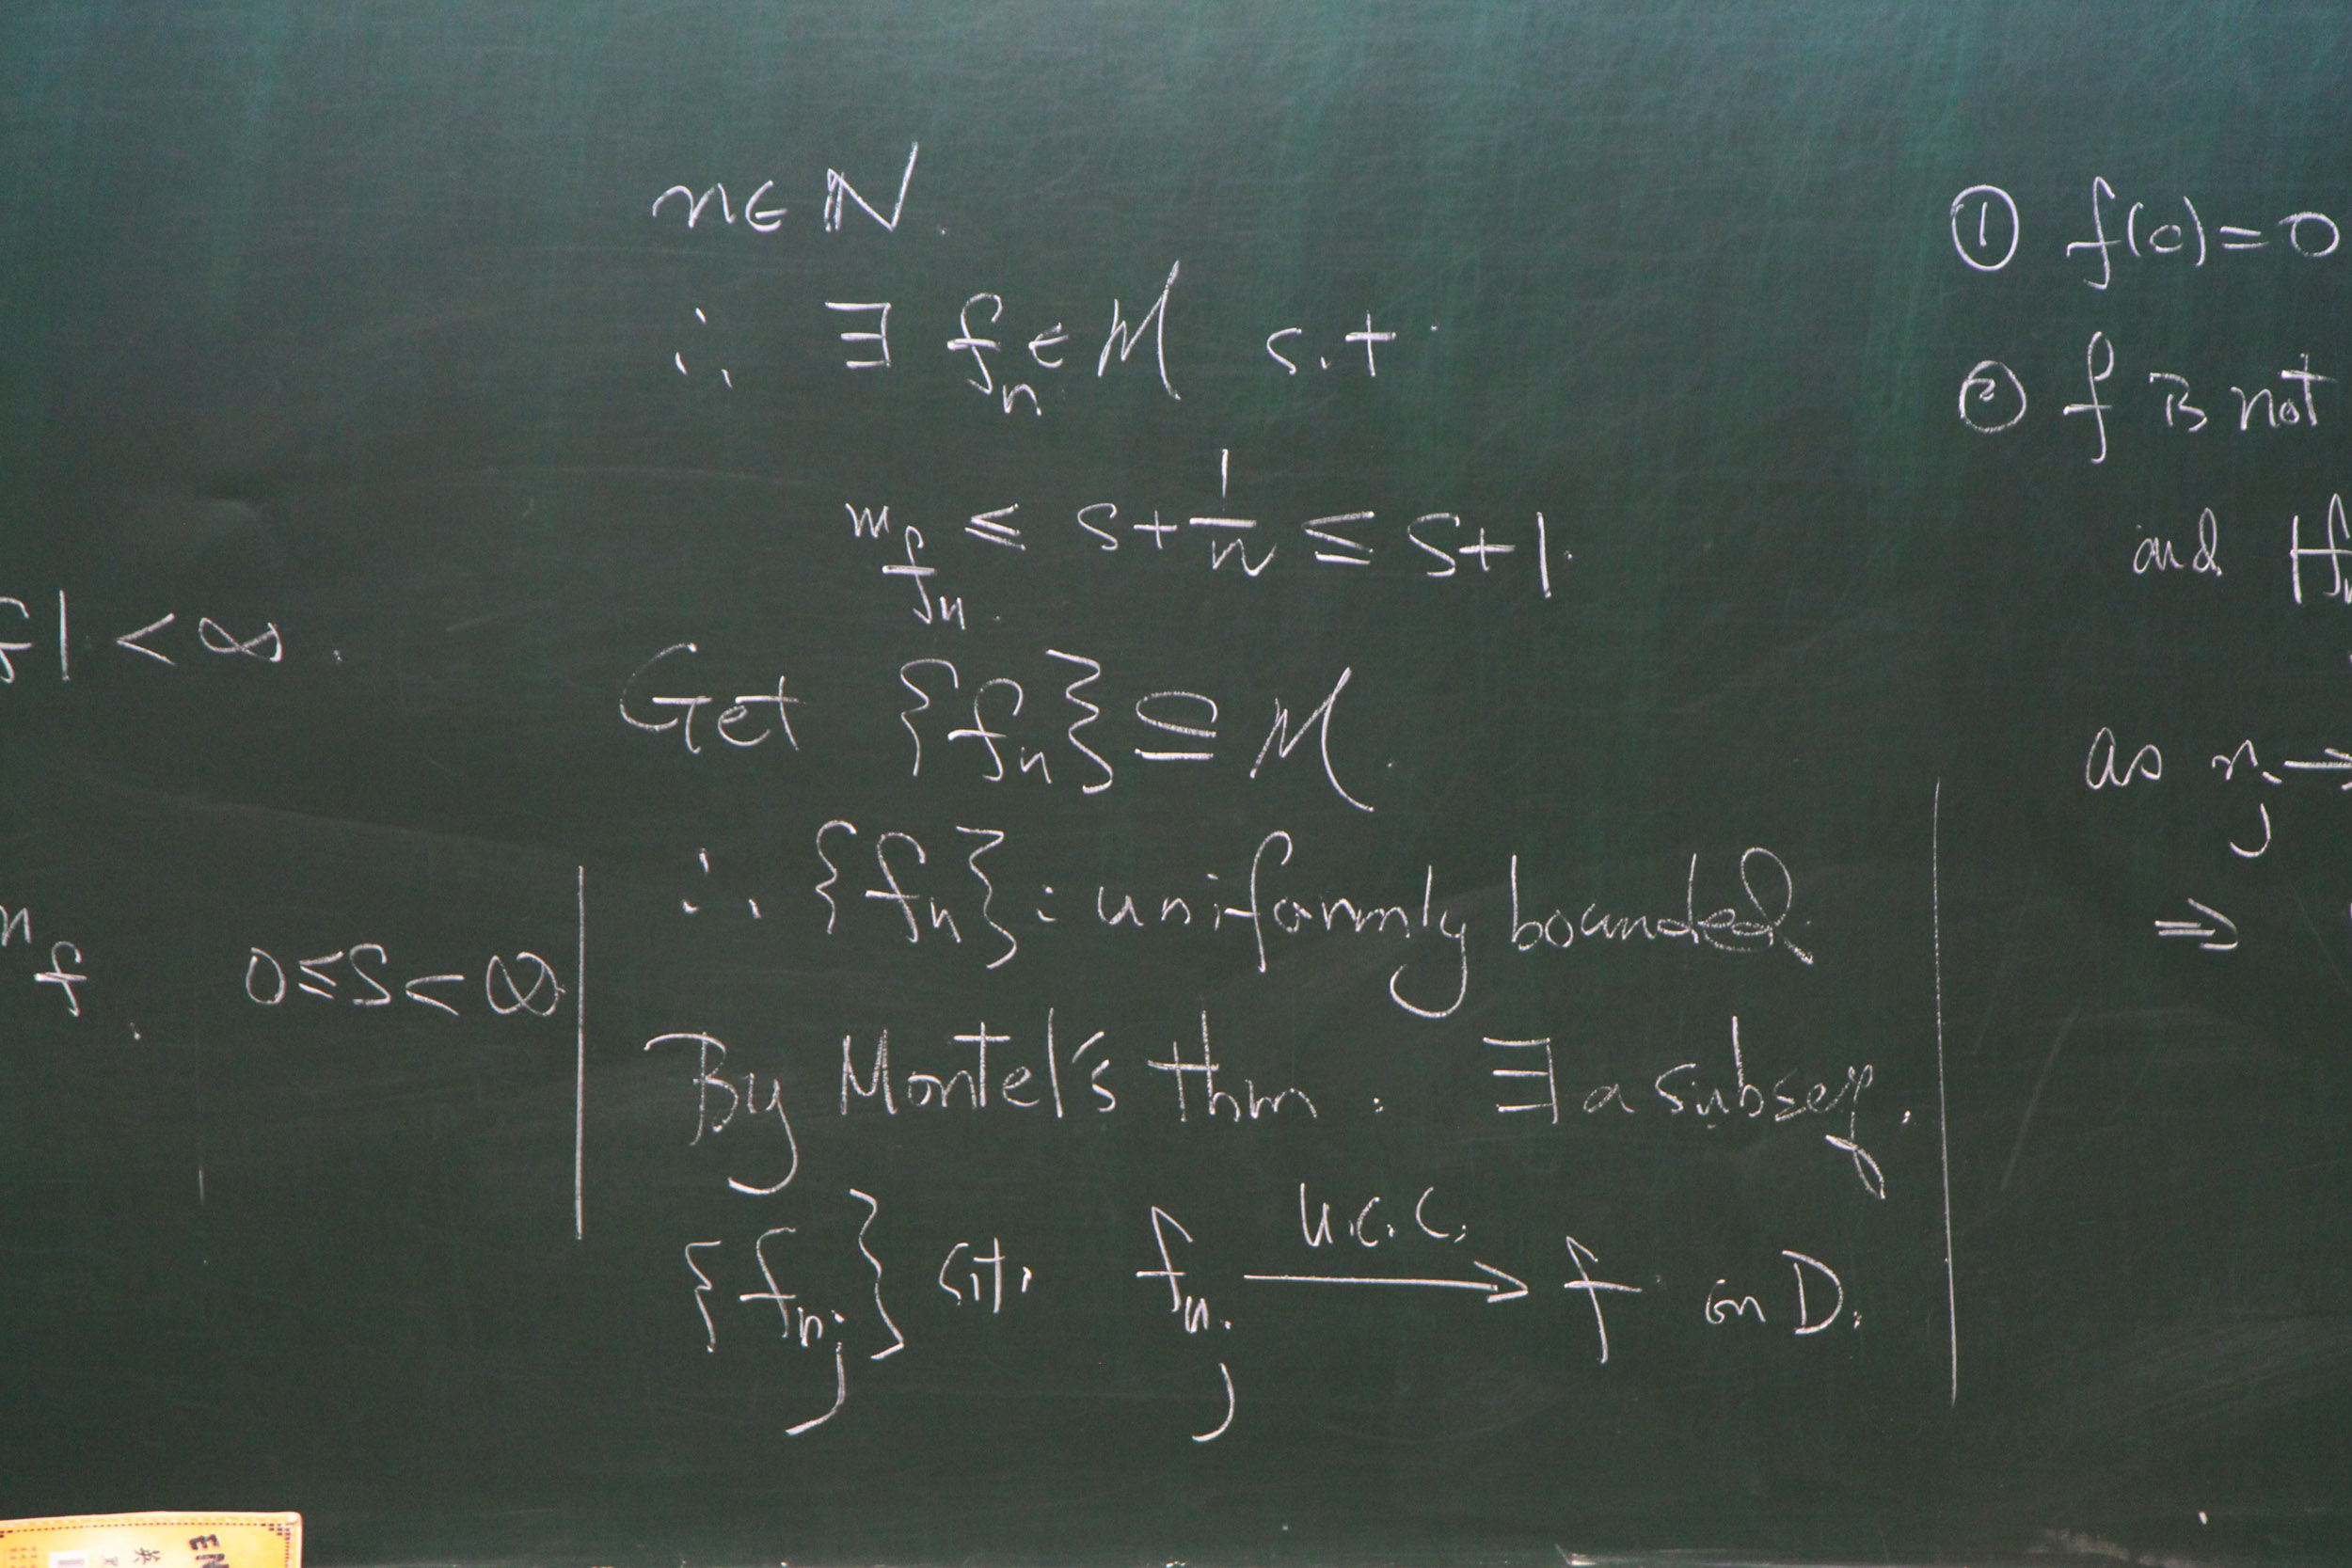 f| < ∞.
m_f. 0 ≤ S < ∞
n ∈ ℕ.
∴ ∃ f_n ∈ M s.t.
m_{f_n} ≤ s + 1/n ≤ S + 1.
Get {f_n} ⊆ M.
∴ {f_n} : uniformly bounded.
By Montel's thm. ∃ a subseq.
{f_{n_j}} s.t. f_{n_j} —u.c.c.→ f on D.
① f(0) = 0
② f is not
and |f_n
as n_j →
⇒
EN